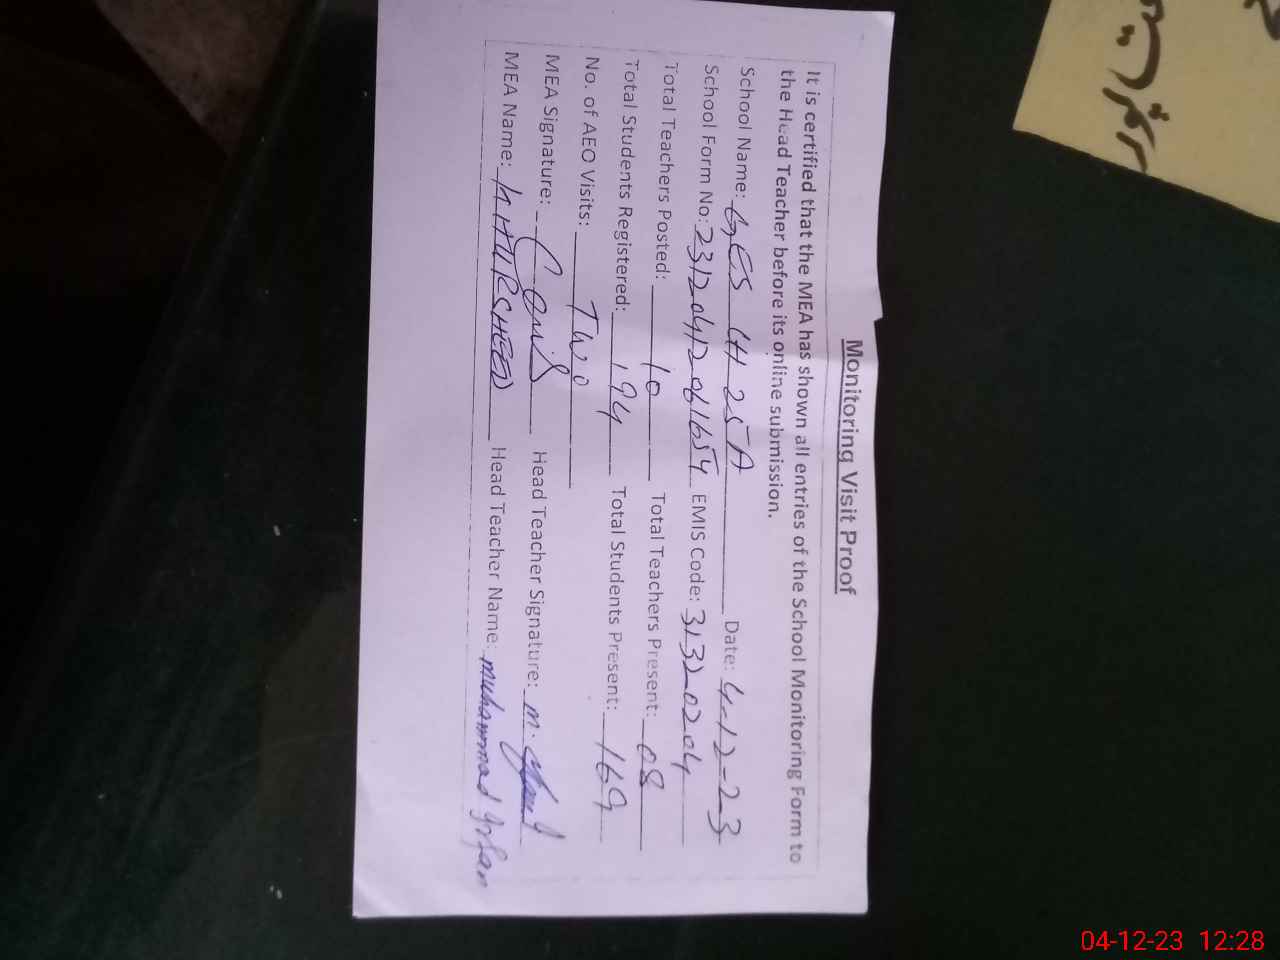 Monitoring Visit Proof
It is certified that the MEA has shown all entries of the School Monitoring Form to
the Head Teacher before its online submission.
School Name: GES CH 25 A Date: 4-12-23
School Form No: 23120412061654 EMIS Code: 31320204
Total Teachers Posted: 10 Total Teachers Present: 08
Total Students Registered: 194 Total Students Present: 169
No. of AEO Visits: Two
MEA Signature: Head Teacher Signature: M.
MEA Name: KHURSHEED Head Teacher Name: Muhammad Irfan
04-12-23 12:28